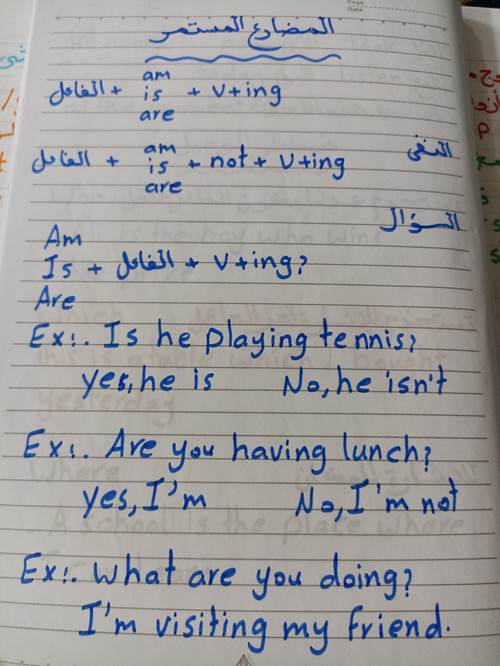 المضارع المستمر
am
الفاعل + is + v+ing
are
النفي
am
الفاعل + is + not + v+ing
are
السؤال
Am
Is + الفاعل + v+ing?
Are
Ex:. Is he playing tennis?
yes, he is No, he isn't
Ex:. Are you having lunch?
yes, I'm No, I'm not
Ex:. What are you doing?
I'm visiting my friend.